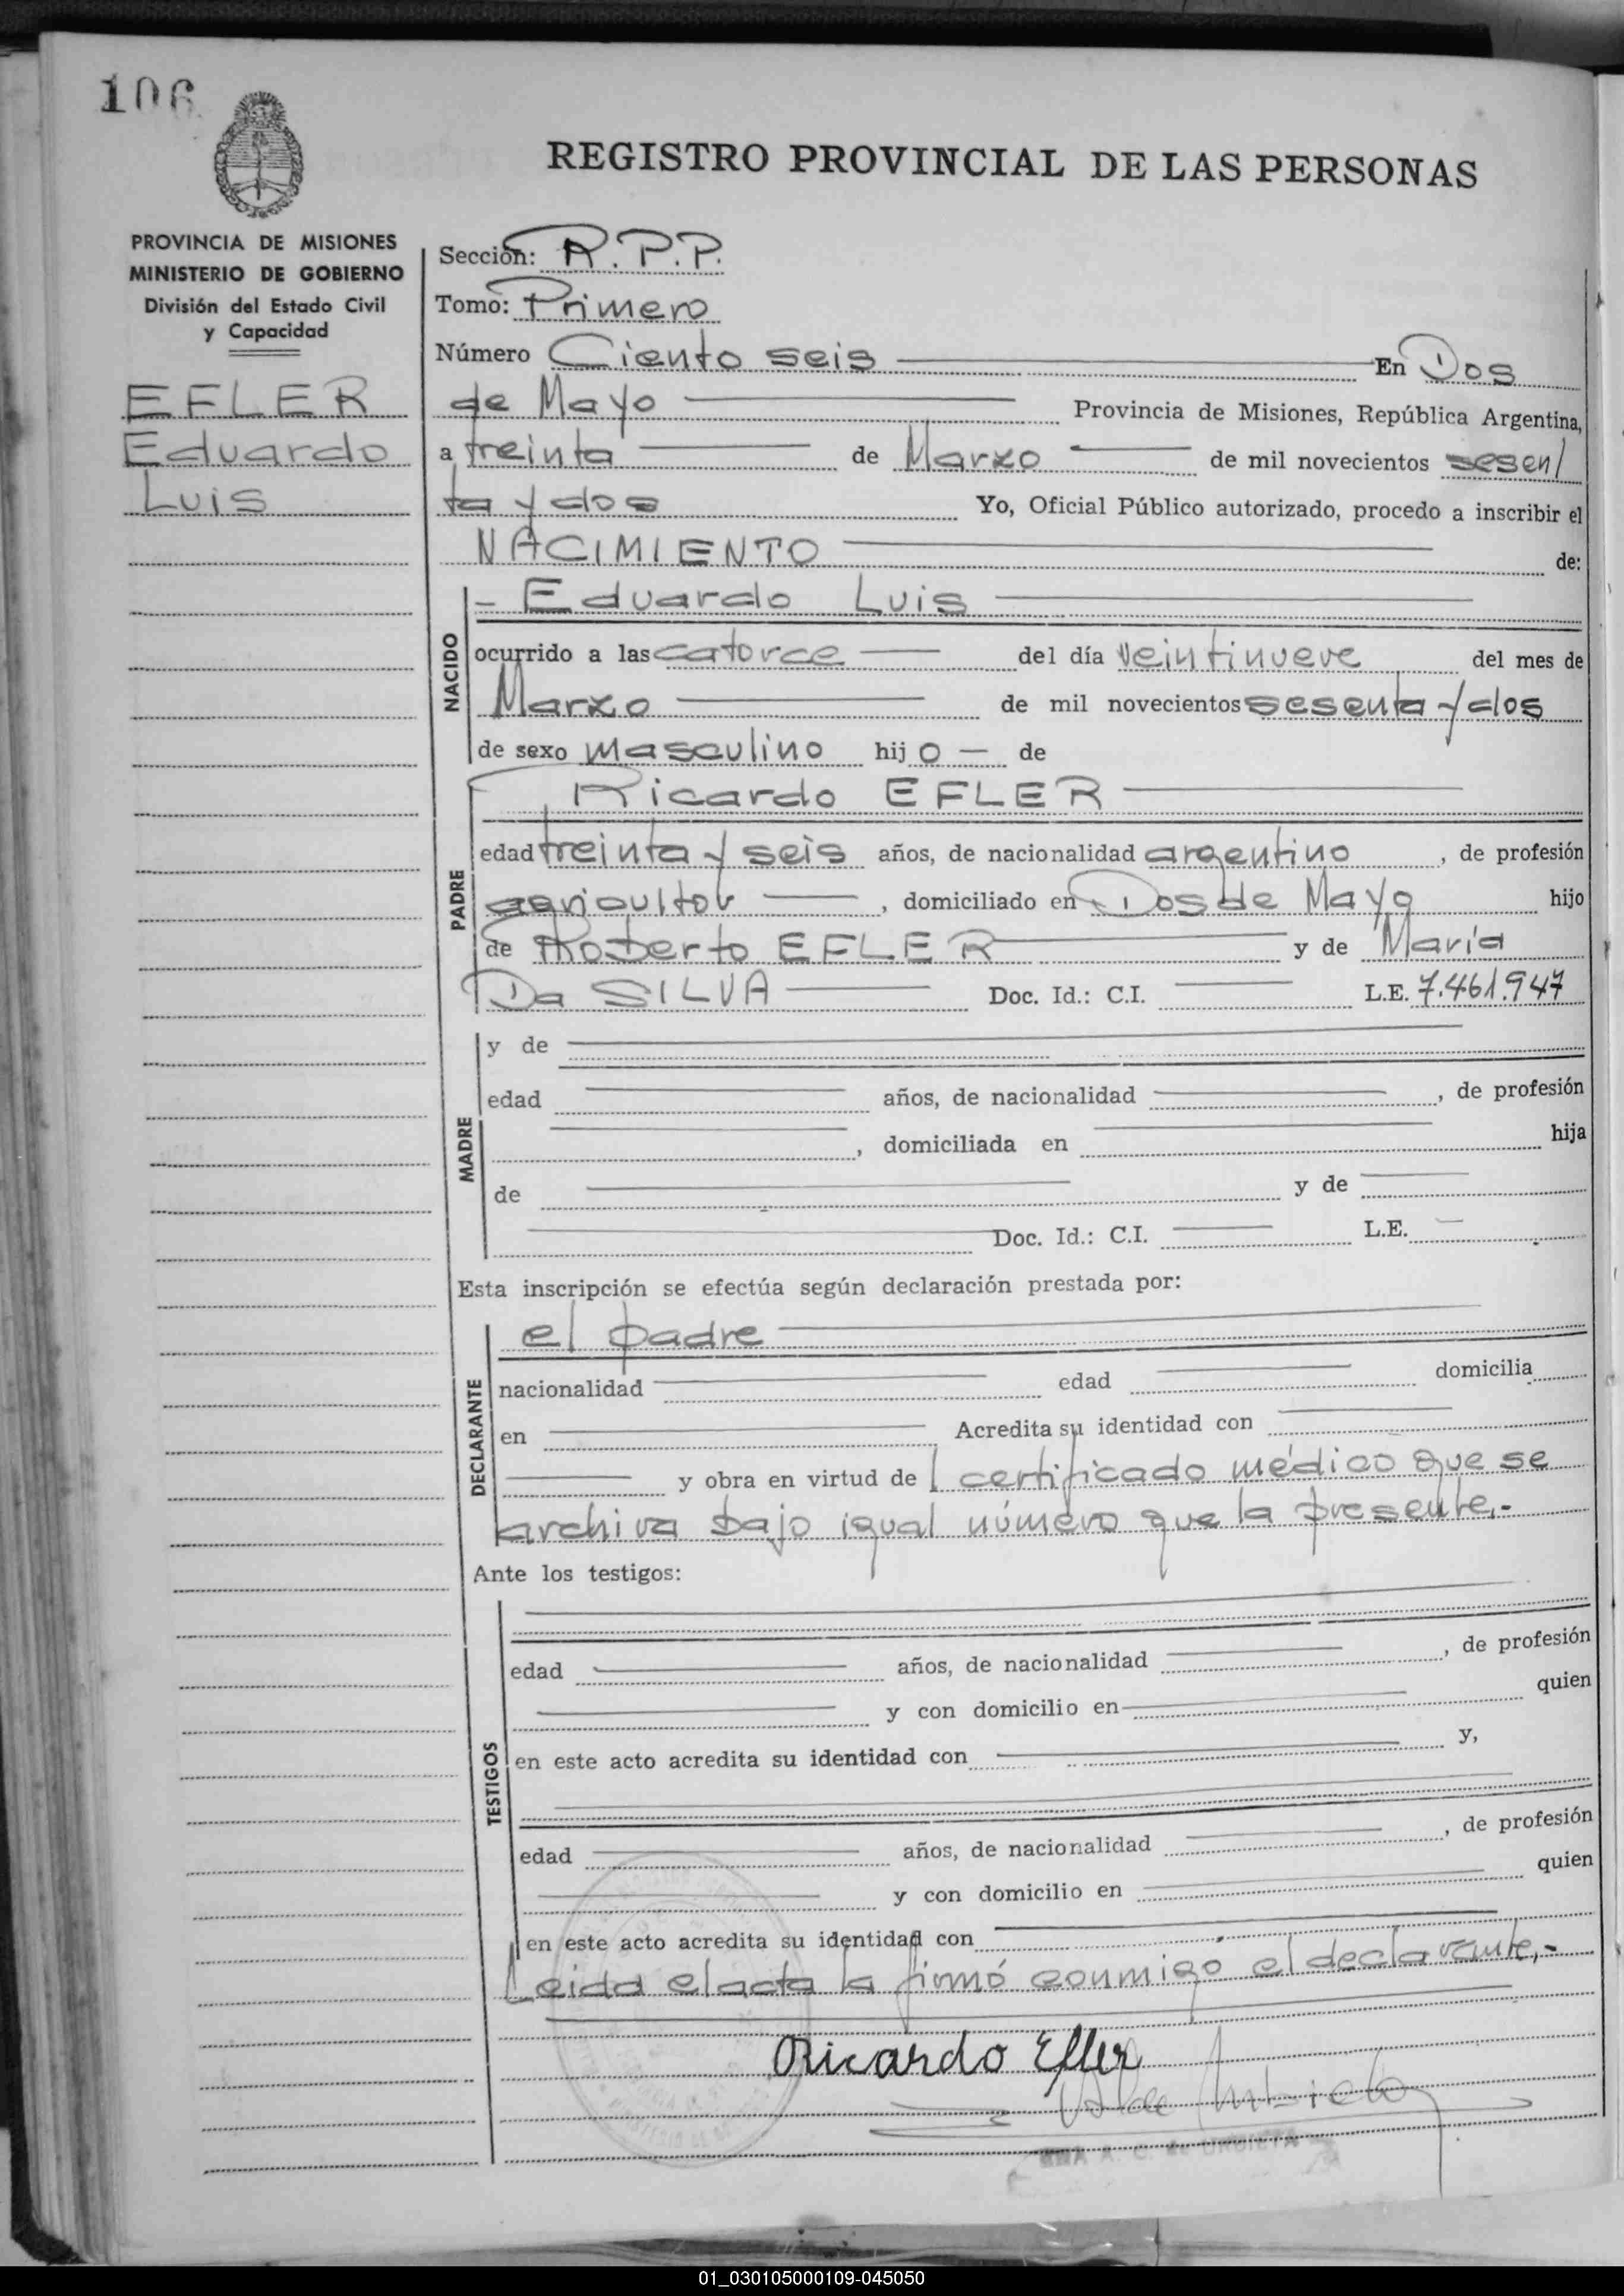 106
REGISTRO PROVINCIAL DE LAS PERSONAS
PROVINCIA DE MISIONES
MINISTERIO DE GOBIERNO
División del Estado Civil
y Capacidad
EFLER
Eduardo
Luis
Sección: R.P.P.
Tomo: Primero
Número Ciento seis En Dos
de Mayo Provincia de Misiones, República Argentina,
a treinta de Marzo de mil novecientos sesen/
ta y dos Yo, Oficial Público autorizado, procedo a inscribir el
NACIMIENTO de:
NACIDO
- Eduardo Luis
ocurrido a las catorce del día veintinueve del mes de
Marzo de mil novecientos sesenta y dos
de sexo masculino hijo — de
PADRE
Ricardo EFLER
edad treinta y seis años, de nacionalidad argentino, de profesión
agricultor, domiciliado en Dos de Mayo hijo
de Roberto EFLER y de María
Da SILVA Doc. Id.: C.I. L.E. 7.461.947
MADRE
y de
edad años, de nacionalidad , de profesión
, domiciliada en hija
de y de
Doc. Id.: C.I. L.E.
Esta inscripción se efectúa según declaración prestada por:
DECLARANTE
el padre
nacionalidad edad domicilia
en Acredita su identidad con
y obra en virtud del certificado médico que se
archiva bajo igual número que la presente.-
Ante los testigos:
TESTIGOS
edad años, de nacionalidad , de profesión
y con domicilio en quien
en este acto acredita su identidad con y,
edad años, de nacionalidad , de profesión
y con domicilio en quien
en este acto acredita su identidad con
Leida el acta la firmó conmigo el declarante.-
Ricardo Efler
A. C. de URBIETA
01_030105000109-045050